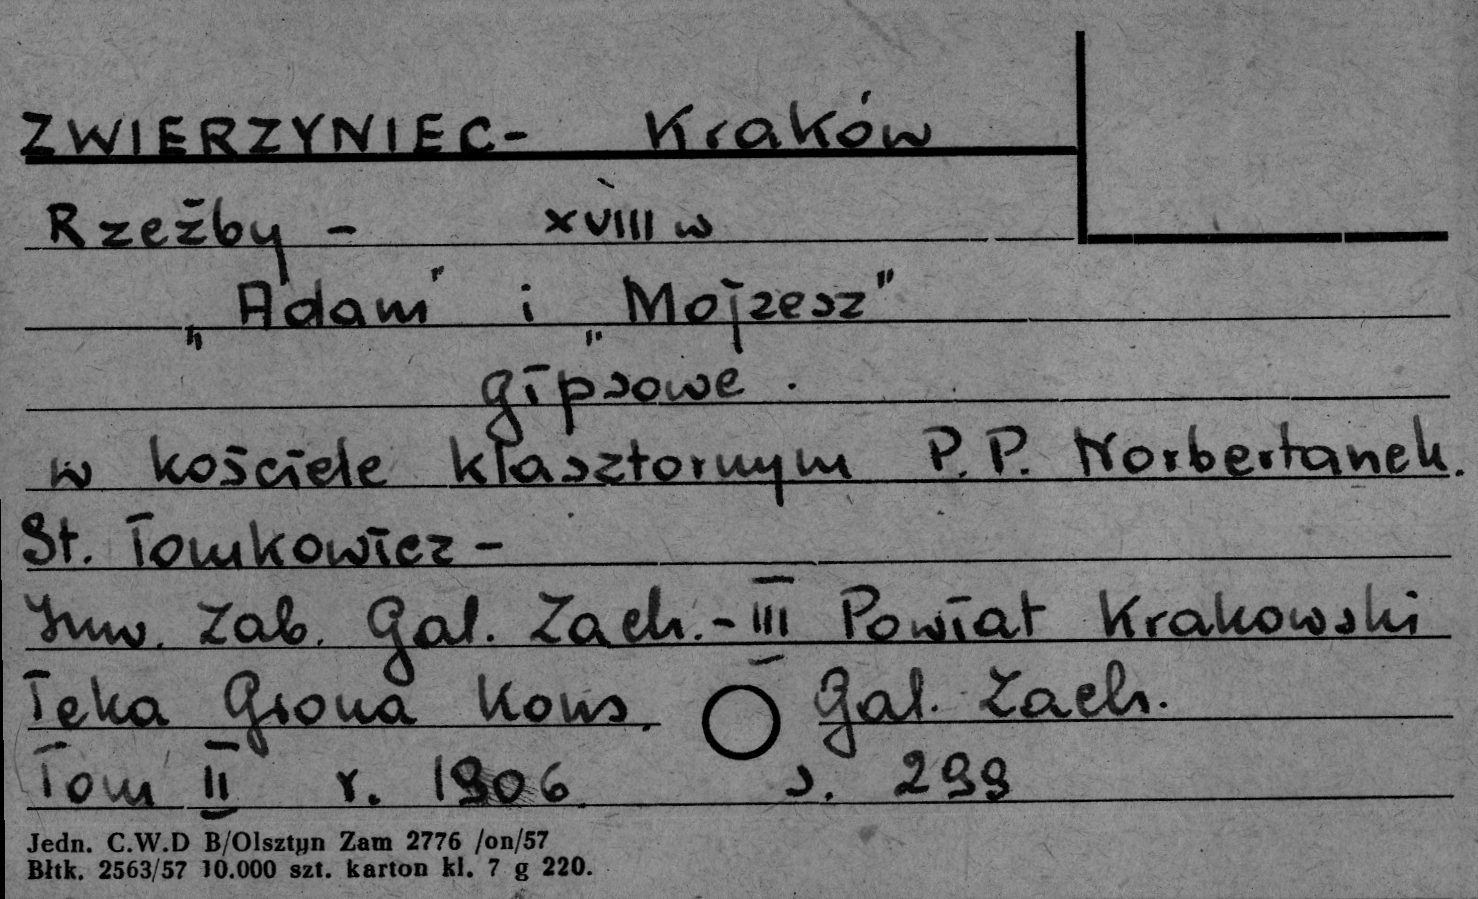 ZWIERZYNIEC- Kraków
Rzeźby - XVIII w
„Adam" i „Mojzesz"
gipsowe.
w kościele klasztornym P.P. Norbertanek.
St. Tomkowicz -
Inw. Zab. Gal. Zach. - III Powiat Krakowski
Teka Grona Kons. Gal. Zach.
Tom II r. 1906 s. 299
Jedn. C.W.D B/Olsztyn Zam 2776 /on/57
Błtk. 2563/57 10.000 szt. karton kl. 7 g 220.